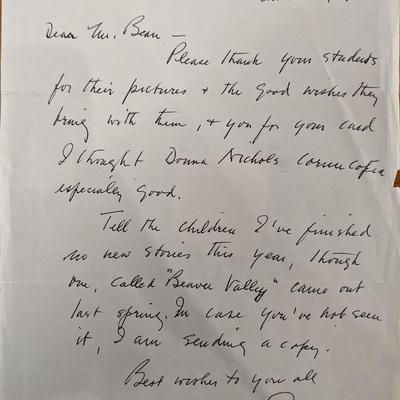 Dear Mr. Bean —
Please thank your students
for their pictures + the good wishes they
bring with them, + you for your card
I thought Donna Nichols cornucopia
especially good.
Tell the children I've finished
no new stories this year, though
one, called "Beaver Valley" came out
last spring. In case you've not seen
it, I am sending a copy.
Best wishes to you all